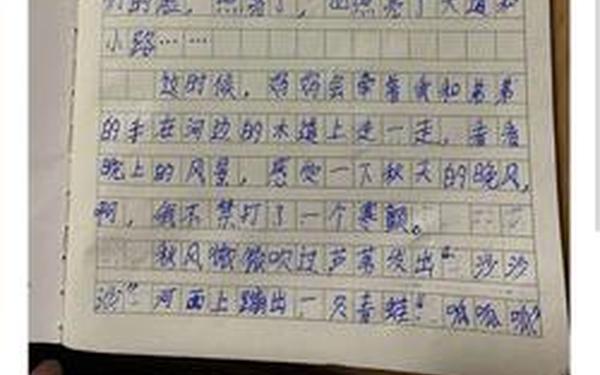 小路……
这时候，妈妈会牵着我和弟弟
的手在河边的木道上走一走，看看
晚上的风景，感觉一下秋天的晚风，
啊，我不禁打了一个寒颤。
秋风微微吹过芦苇发出“沙沙
沙”河面上蹦出一只青蛙“呱呱呱”